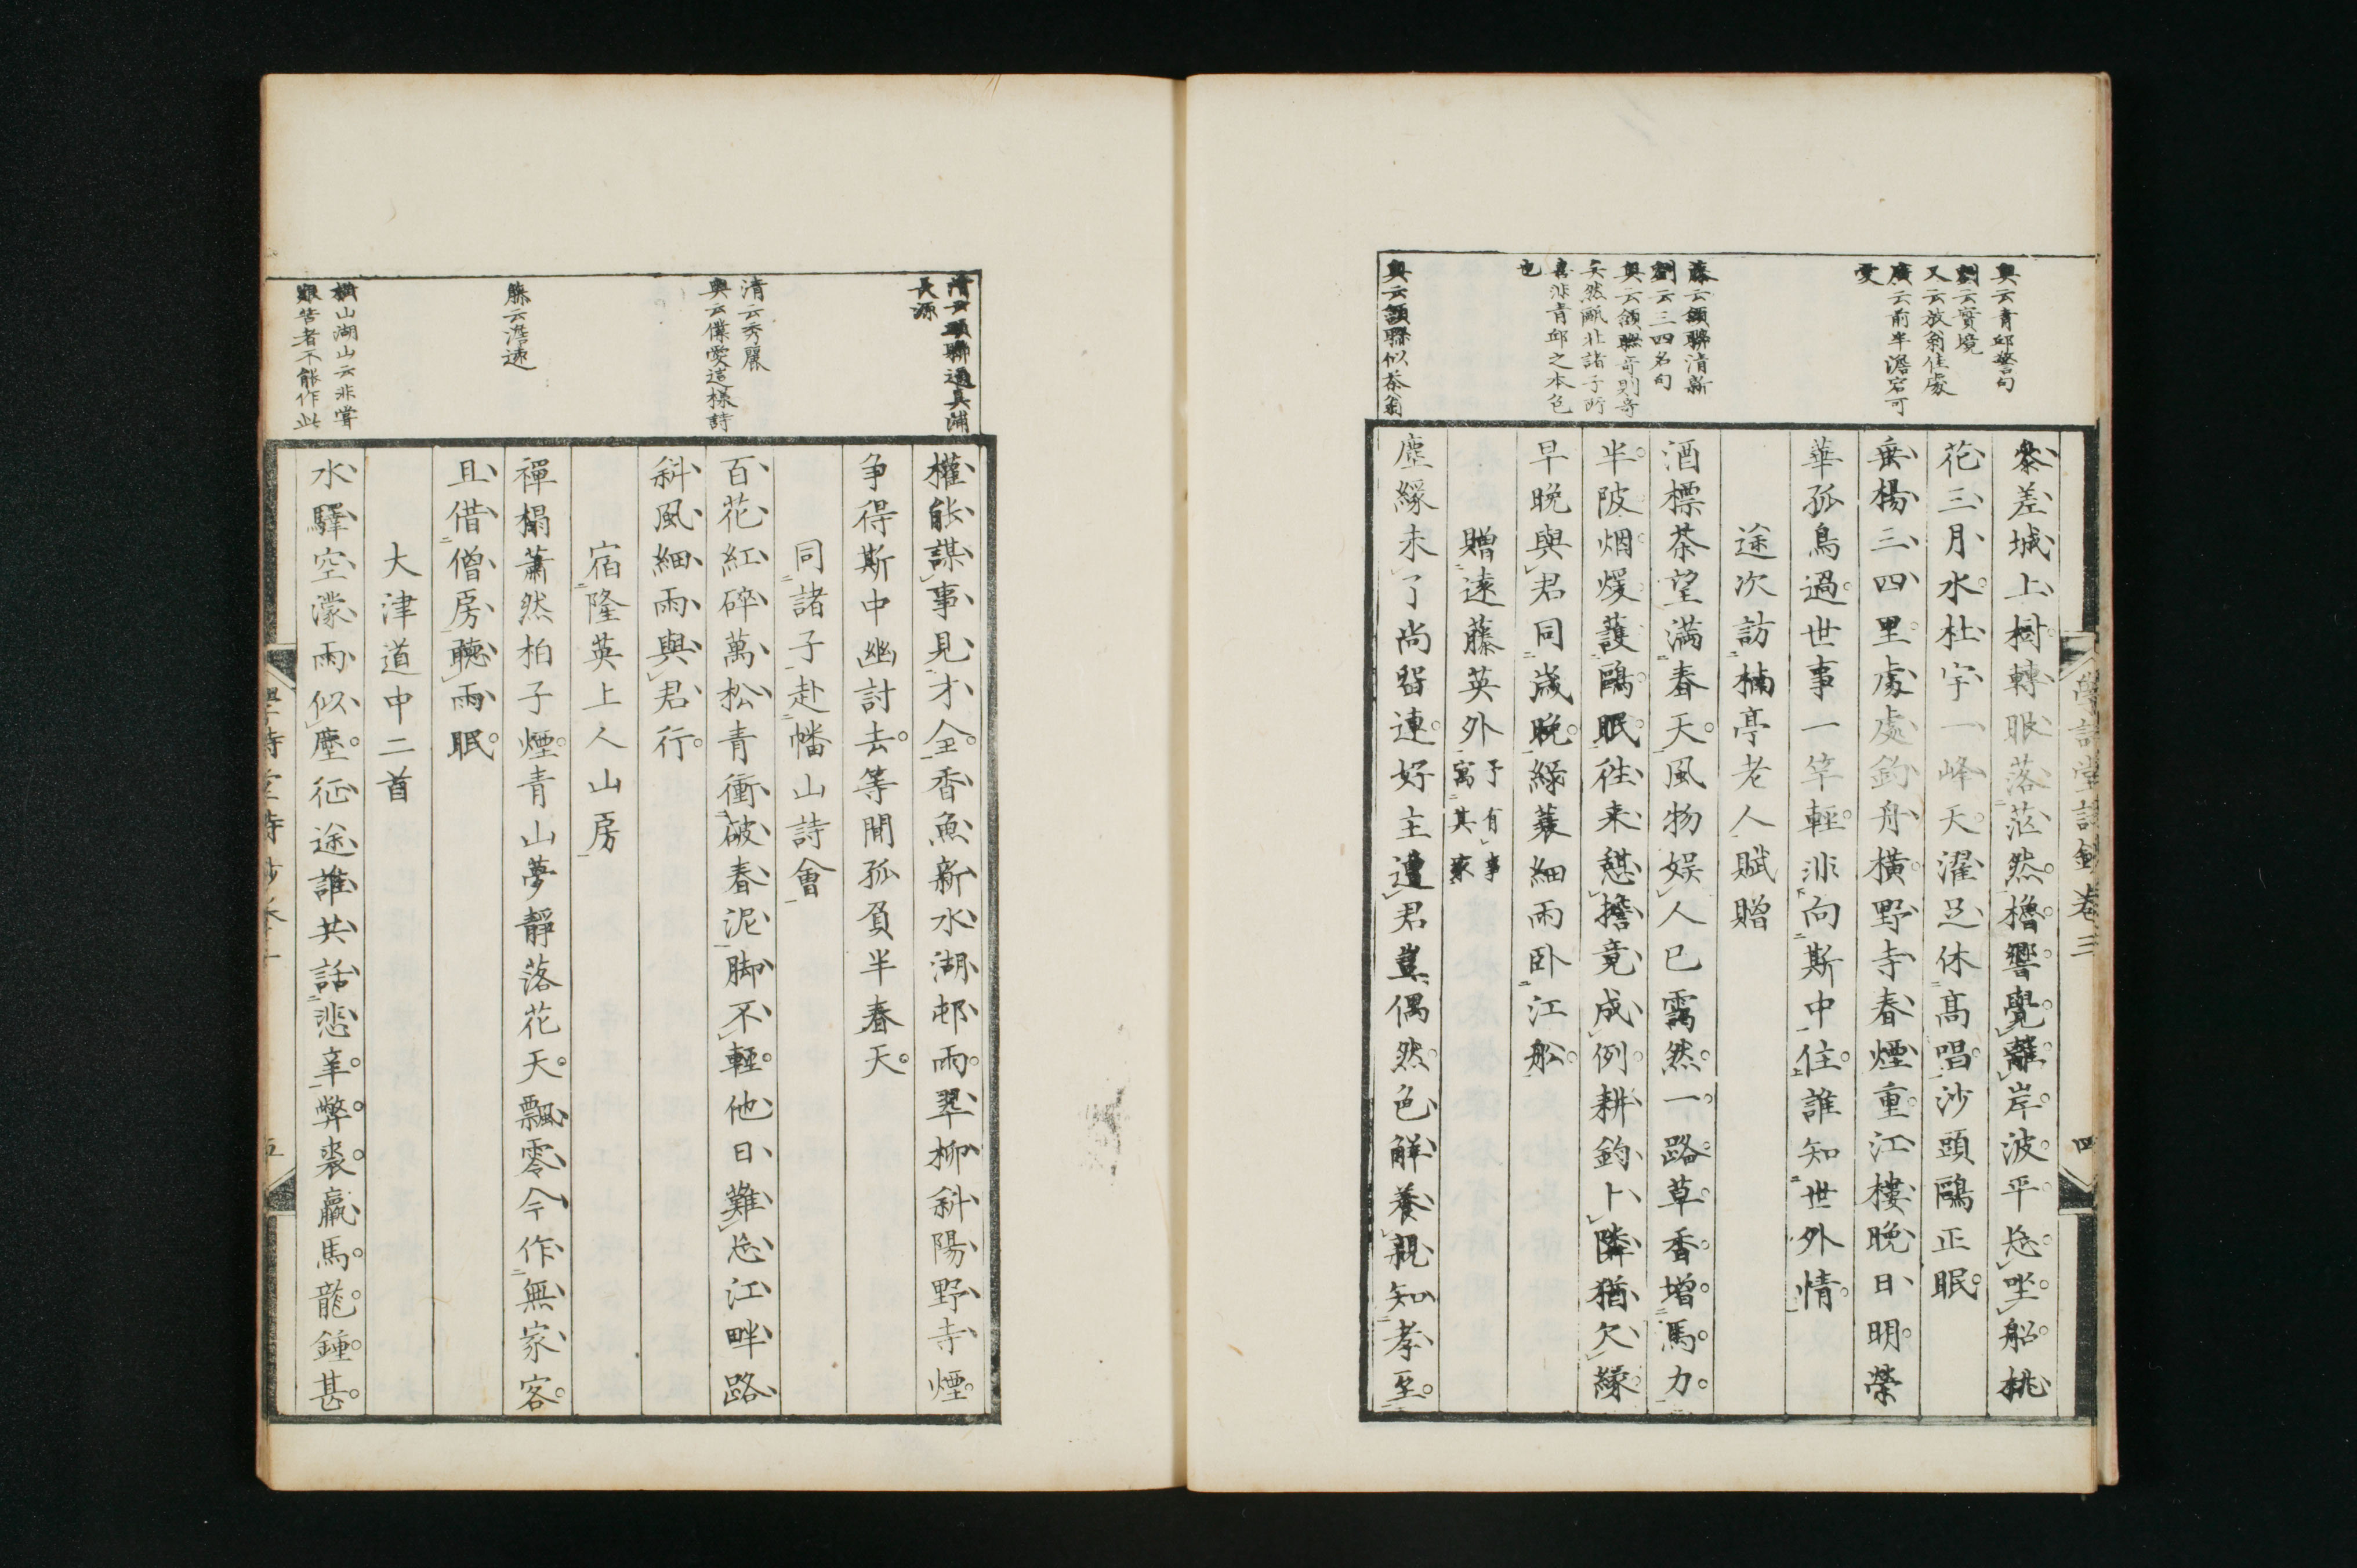 奥云青邱警句
劉云實境
又云放翁佳處
廣云前半澹宕可
愛
藤云頷聯清新
劉云三四名句
奥云頷聯奇則奇
矣然甌北諸子所
喜非青邱之本色
也
奥云頷聯似茶翁
參差城上樹轉眼落茫然櫓響覺離岸波平忘坐船桃
花三月水杜宇一峰天濯足休高唱沙頭鷗正眠
垂楊三四里處處釣舟橫野寺春煙重江樓晚日明榮
華孤鳥過世事一竿輕非向斯中住誰知世外情
途次訪楠亭老人賦贈
酒標茶望滿春天風物娯人已靄然一路草香増馬力
半陂烟煖護鷗眠往来憇擔竟成例耕釣卜隣猶欠縁
早晚與君同歳晩緑蓑細雨卧江船
贈遠藤英外予有事寓其家
塵縁未了尚留連好主遭君豈偶然色觧養親知孝至
學詩堂詩鈔卷三
四
清云頷聯逼真浦
長源
清云秀麗
奥云僕愛這樣詩
藤云澹遠
横山湖山云非嘗
艱苦者不能作此
權能謀事見才全香魚新水湖邨雨翠柳斜陽野寺煙
争得斯中幽討去等閒孤負半春天
同諸子赴幡山詩會
百花紅碎萬松青衝破春泥脚不輕他日難忘江畔路
斜風細雨與君行
宿隆英上人山房
禪榻蕭然柏子煙青山夢靜落花天飄零今作無家客
且借僧房聽雨眠
大津道中二首
水驛空濛雨似塵征途誰共話悲辛弊裘羸馬龍鍾甚
學詩堂詩鈔卷三
五